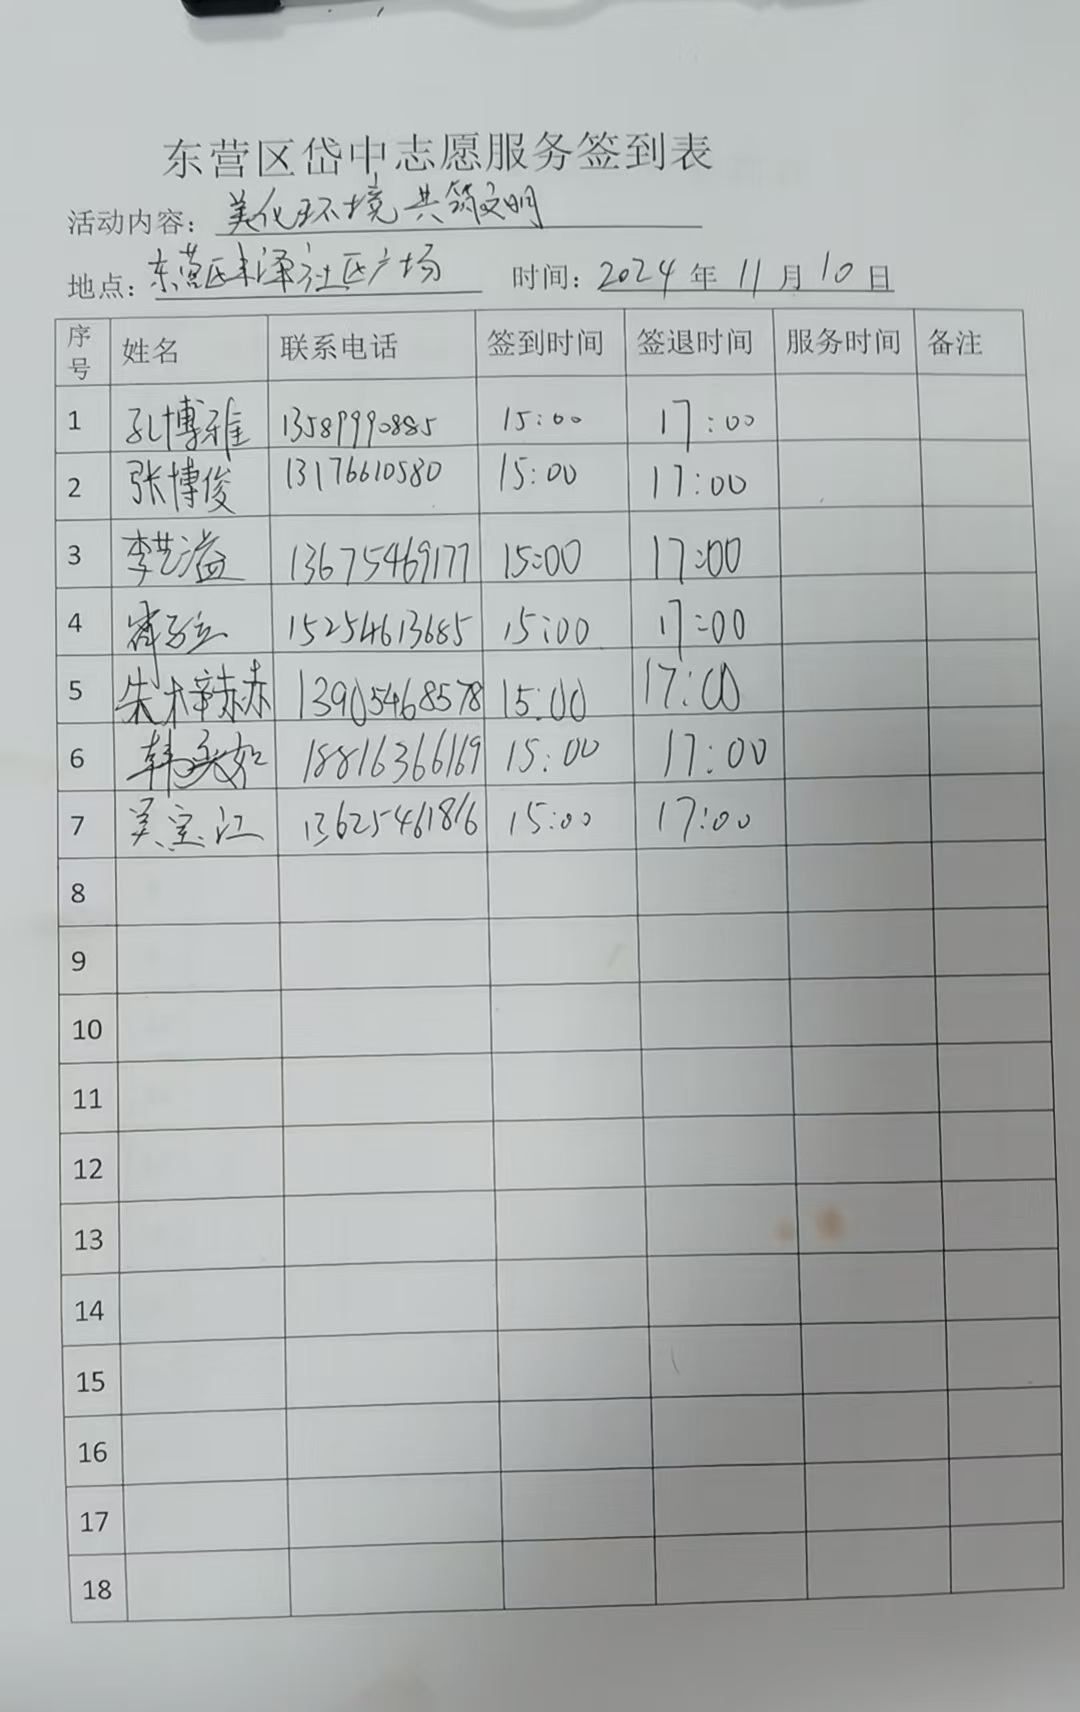 东营区岱中志愿服务签到表
活动内容：美化环境 共筑文明
地点：东营区丰泽社区广场 时间：2024年11月10日
序号 姓名 联系电话 签到时间 签退时间 服务时间 备注
1 孔博雅 13589990885 15:00 17:00
2 张博俊 13176610580 15:00 17:00
3 李艺溢 13675469177 15:00 17:00
4 15254613685 15:00 17:00
5 朱梓赫 13905468578 15:00 17:00
6 韩奕如 18816366169 15:00 17:00
7 吴宝江 13625461816 15:00 17:00
8
9
10
11
12
13
14
15
16
17
18